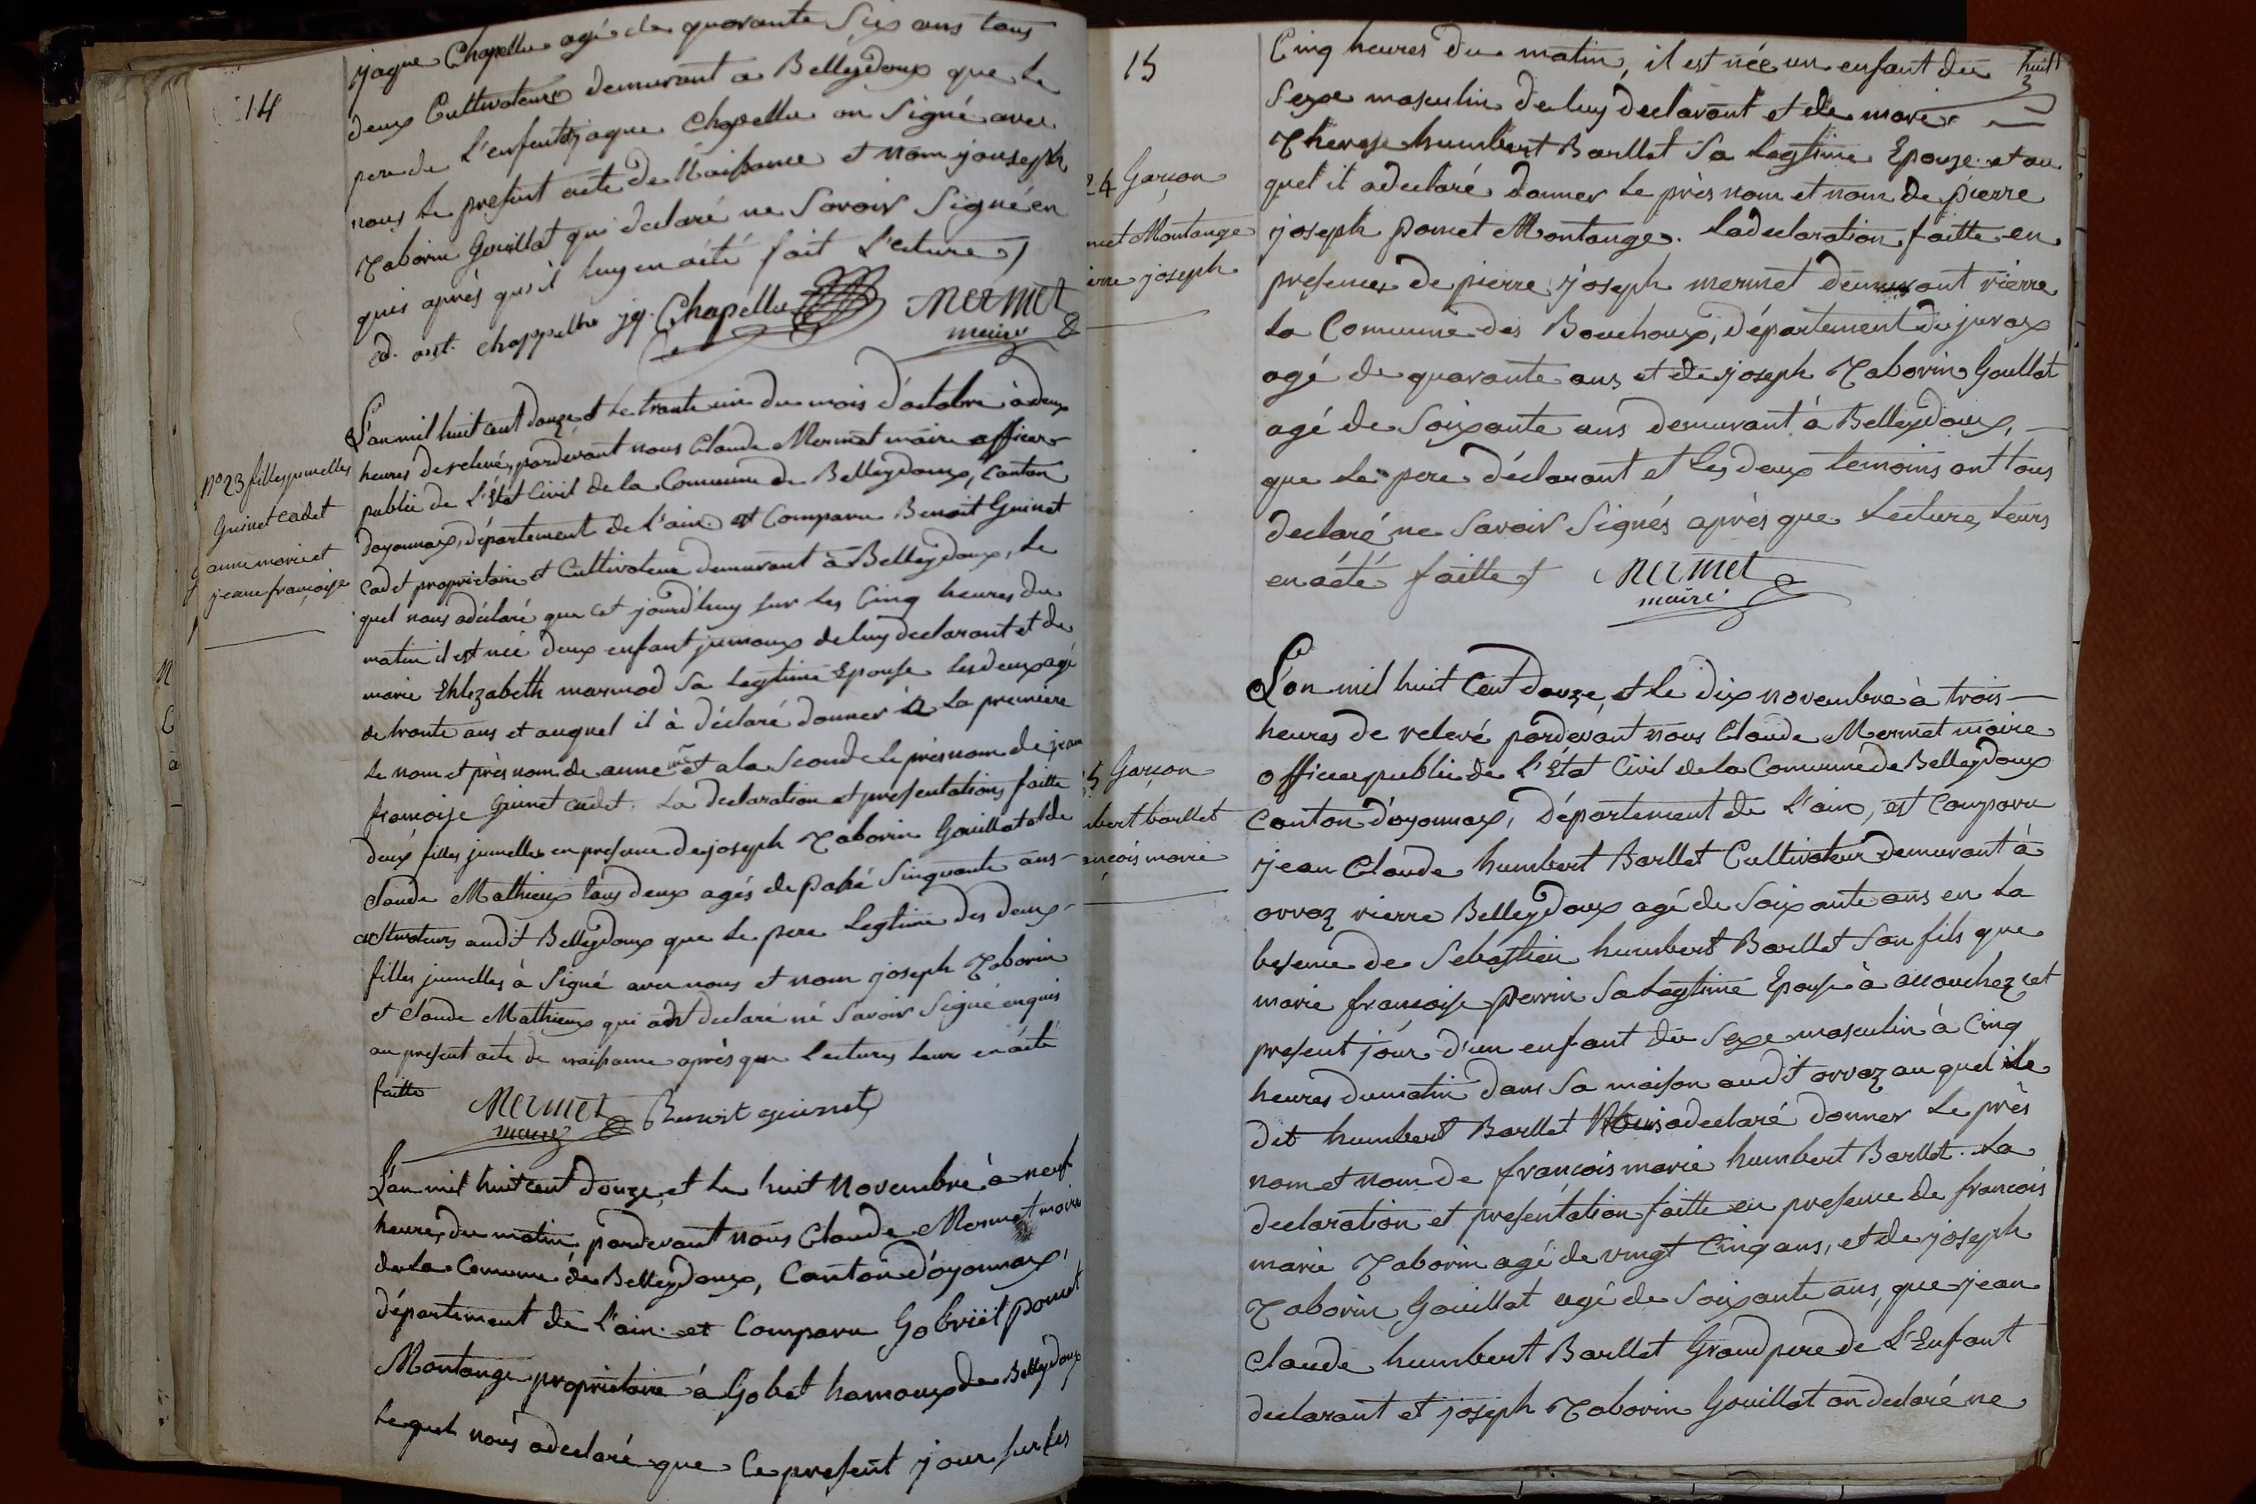 14
jaque Chapellu agé de quarante Six ans tous
deux Cultivateurs demurant a Belleydoux que le
pere de L'enfent et jaque Chapellu on Signé avec
nous le present acte de Naissance et nom jouseph
Taborin Gouillat qui declaré ne Savoir Signé en
quis après qu'il luy en a été fait Lecture
cd. ant. chappellu jq. Chapellu Mermet
maire
n° 23 filles jumelles
Guinet Cadet
anne marie et
jeane françoise
L'an mil huit cent douze et le trante un du mois d'octobre à deux
heures de relevé, pardevant nous Claude Mermet maire officier
public de L'État Civil de la Commune de Belleydoux, Canton
d'oyonnax, département de l'ain est Comparu Benoit Guinet
Cadet proprietaire et Cultivateur demurant à Belleydoux, le
quel nous a déclaré que cet jourd'huy sur les Cinq heures du
matin il est née deux enfant jumaux de luy declarant et de
marie Ehlizabeth marmod Sa Legtime Epouse les deux agé
de trante ans et auquel il à déclaré donner à La premiere
le nom et près nom de anne mie et a la Seconde le près nom de jean
françoise Guinet cadet. La declaration et presentation faitte
deux filles jumelles en presence de joseph Taborin Gouillat et de
Claude Mathieux tous deux agés de passé Sinquante ans
cultivateurs audit Belleydoux que le pere Legtime des deux
filles jumelles à Signé avec nous et nom joseph Taborin
et Claude Mathieux qui ont declaré né Savoir Signé enquis
au present acte de naissance après que Lecture leur en a été
faitte
Mermet Benoit guinet
maire
L'an mil huit cent douze, et le huit Novembre à neuf
heures du matin pardevant nous Claude Mermet maire
de la Comune de Belleydoux, Canton d'oyonnax,
département de l'ain et Comparu Gabriel Poncet
Montange proprietaire à Gobet hamaux de Belleydoux
lequel nous a declaré que le present jour sur les
15
Cinq heures du matin, il est née un enfant du
Sexe masculin de luy declarant et de marie
Therese humbert Barllet Sa Legtime Epouze et au
quel il a declaré donner le près nom et nom de pierre
joseph Poncet Montange. La declaration faitte en
presence de pierre joseph mermet demurant rierre
La Commune des Bouchoux, département du jurax
agé de quarante ans et de joseph Taborin Goullat
agé de Soixante ans demurant à Belleydoux,
que le pere déclarant et les deux temoins ont tous
declaré ne Savoir Signés après que Lecture Leurs
en a été faitte Mermet
maire
24 Garçon
Montange
joseph
L'an mil huit Cent douze, et le dix novembre à trois
heures de relevé pardevant nous Claude Mermet maire
officier public de L'État Civil de la Commune de Belleydoux
Canton d'oyonnax, Département de L'ain, est Comparu
jean Claude humbert Barllet Cultivateur demurant à
orvaz rierre Belleydoux agé de Soixante ans en La
besence de Sebastien humbert Barllet Son fils que
marie françoise Perrin Sa Legtime Epouse à accouchez cet
present jour d'un enfant du Sexe masculin à Cinq
heures du matin dans Sa maison audit orvaz au quel ile
dit humbert Barllet Nous a declaré donner Le près
nom et nom de françois marie humbert Barllet. La
declaration et presentation faitte en presence de françois
marie Taborin agé de vingt Cinq ans, et de joseph
Taborin Gouillat agé de Soixante ans, que jean
Claude humbert Barllet Grand pere de L'Enfant
declarant et joseph Taborin Gouillat on declaré ne
Garçon
barllet
marie